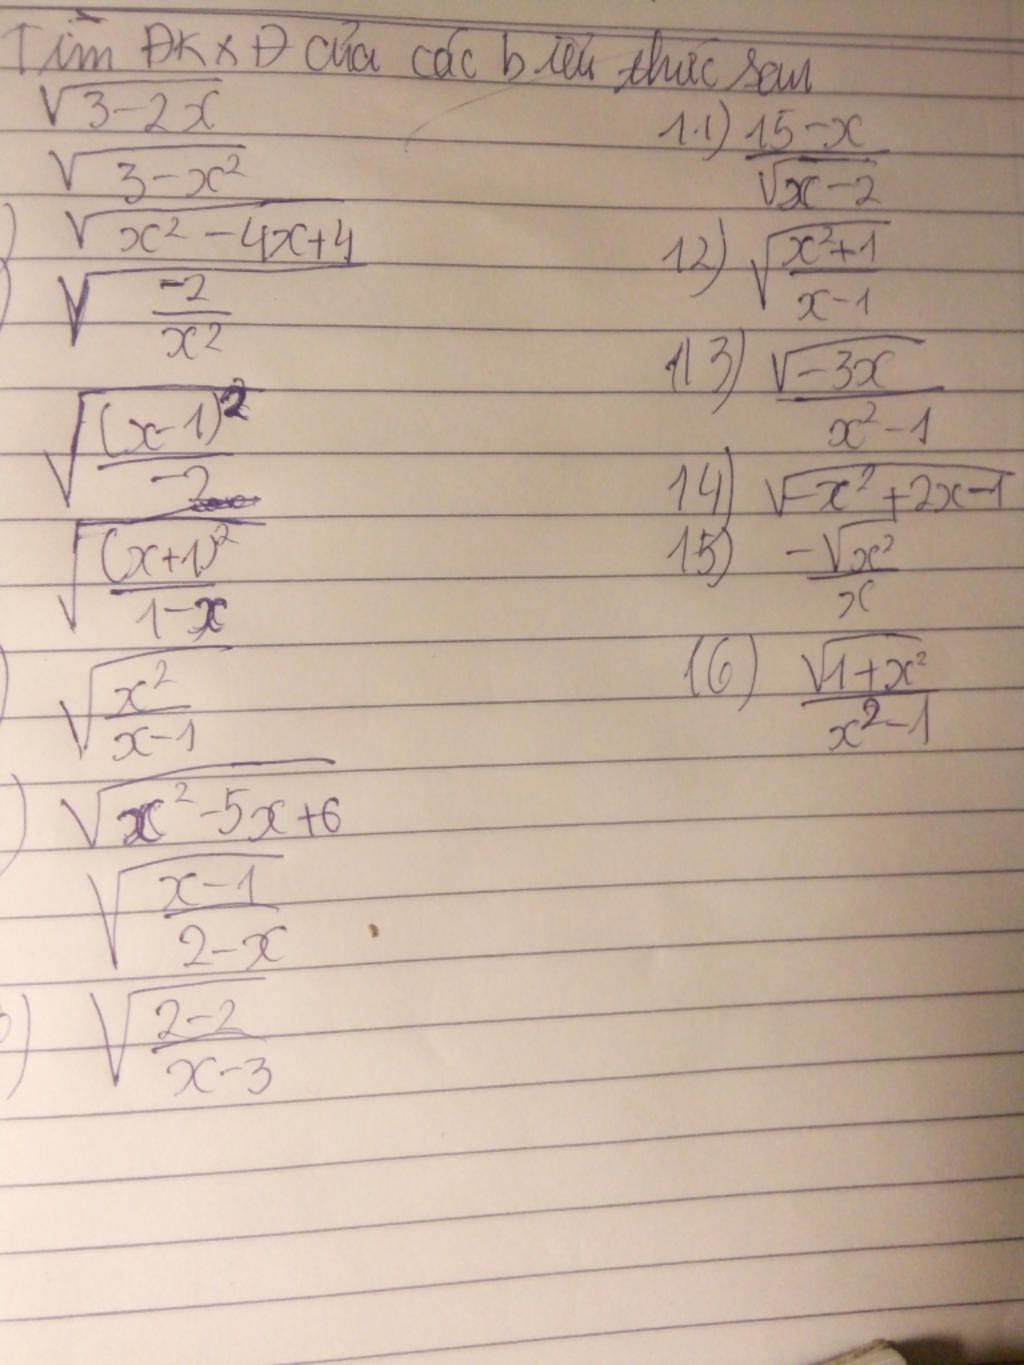 Tìm ĐKXĐ của các biểu thức sau
√(3-2x)
√(3-x²)
) √(x²-4x+4)
√(-2/x²)
√((x-1)²/-2)
√((x+1)²/(1-x))
) √(x²/(x-1))
) √(x²-5x+6)
√((x-1)/(2-x))
) √((2-2)/(x-3))
11) (15-x)/√(x-2)
12) √((x²+1)/(x-1))
13) √(-3x)/(x²-1)
14) √(-x²+2x-1)
15) -√(x²)/x
16) √(1+x²)/(x²-1)